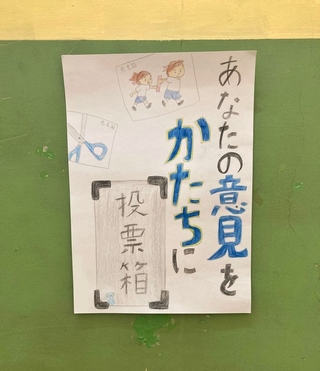 あなたの意見を
かたちに
投票箱